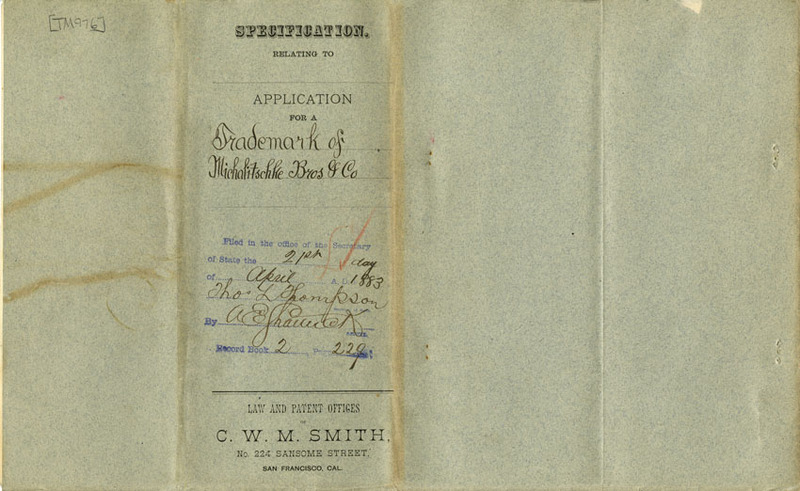 [TM976]
SPECIFICATION.
RELATING TO
APPLICATION
FOR A
Trademark of
Michalitschke Bros & Co
Filed in the office of the Secretary
of State the 21st day
of April A. D. 1883
Thos L Thompson
By
Record Book 2 229
LAW AND PATENT OFFICES
OF
C. W. M. SMITH,
No. 224 SANSOME STREET,
SAN FRANCISCO, CAL.